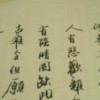 人有悲歡離
有陰晴圓缺此
古難全但願